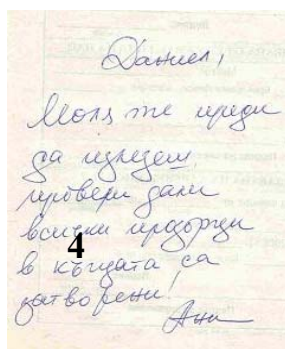 Даниел,
Моля те преди
да излезеш
провери дали
всички прозорци
4
в къщата са
затворени!
Ани